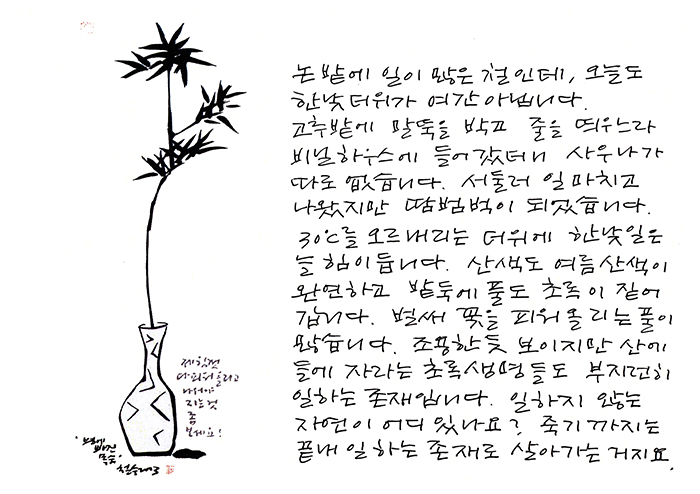 논밭에 일이 많은 철인데, 오늘도
한낮더위가 여간 아닙니다.
고추밭에 말뚝을 박고 줄을 띄우느라
비닐하우스에 들어갔더니 사우나가
따로 없습니다. 서둘러 일 마치고
나왔지만 땀범벅이 되었습니다.
30℃를 오르내리는 더위에 한낮일은
늘 힘이 듭니다. 산색도 여름산색이
완연하고 밭둑에 풀도 초록이 짙어
갑니다. 벌써 꽃을 피워올리는 풀이
많습니다. 조팡한듯 보이지만 산에
들에 자라는 초록생명들도 부지런히
일하는 존재입니다. 일하지 않는
자연이 어디 있나요? 죽기까지는
끝내 일하는 존재로 살아가는 거지요.
제 할일
다
지는것
좀
보세요!
철수